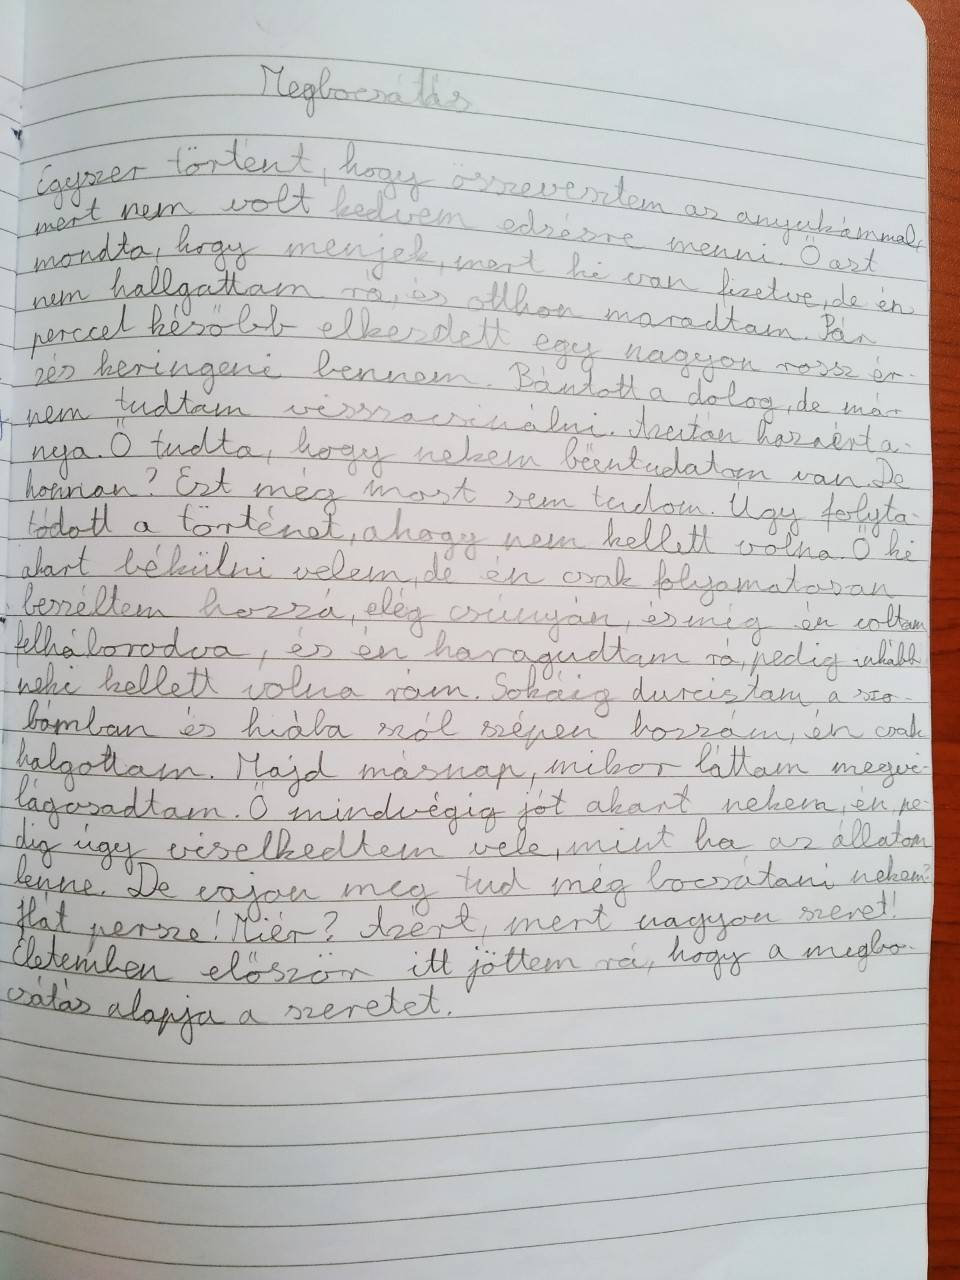 Megbocsátás
Egyszer történt, hogy összevesztem az anyukámmal,
mert nem volt kedvem edzésre menni. Ő azt
mondta, hogy menjek, mert ki van fizetve, de én
nem hallgattam rá, és otthon maradtam. Pár
perccel később elkezdett egy nagyon rossz ér-
zés keringeni bennem. Bántott a dolog, de már
nem tudtam visszacsinálni. Azután hazaért a-
nya. Ő tudta, hogy nekem bűentudatom van. De
honnan? Ezt még most sem tudom. Úgy folyta-
tódott a történet, ahogy nem kellett volna. Ő ki
akart békülni velem, de én csak folyamatosan
beszéltem hozzá, elég csúnyán, és még én voltam
felháborodva, és én haragudtam rá, pedig inkább
neki kellett volna rám. Sokáig durciztam a szo-
bámban és hiába szól szépen hozzám, én csak
halgattam. Majd másnap, mikor láttam megvi-
lágosadtam. Ő mindvégig jót akart nekem, én pe-
dig úgy viselkedtem vele, mint ha az állatom
lenne. De vajon meg tud még bocsátani nekem?
Hát persze! Miér? Azért, mert nagyon szeret!
Életemben először itt jöttem rá, hogy a megbo-
csátás alapja a szeretet.